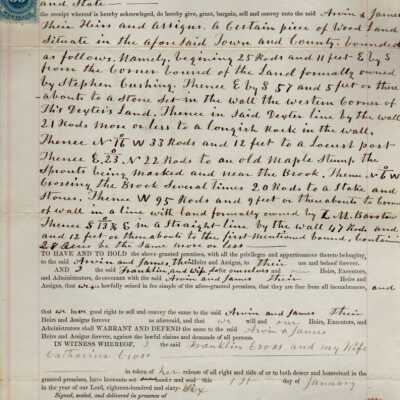 and State—
the receipt whereof is hereby acknowledged, do hereby give, grant, bargain, sell and convey unto the said Arvin & James
Their Heirs and Assigns. A Certain piece of Wood Land
Situate in the Afore Said Town and County. bounded
as follows. Namely, begining 25 Rods and 11 feet E by S
from the Corner bound of the Land formally owned
by Stephen Cushing. Thence E by S 57 and 5 feet or there
abouts to a Stone Set in the wall the western Corner of
Thence in Said Dexter line by the wall
21 Rods more or less to a longish Rock in the wall.
Thence N 16 W 33 Rods and 12 feet to a Locust post
Thence E. 23 N 22 Rods to an old Maple Stump the
Sprouts being marked and near the Brook. Thence N 6 W
Crossing the Brook Several times 20 Rods to a Stake and
Stones. Thence W 95 Rods and 9 feet or thereabouts to
of wall in a line with land formally owned by L. M. Barstow
Thence S 13 E in a Straight line by the wall 47 Rods and
and 12 feet or thereabouts to the first mentioned bound. Containing
28 Acres be the same more or less—
TO HAVE AND TO HOLD the above granted premises, with all the privileges and appurtenances thereto belonging,
to the said Arvin and James, Their Heirs and Assigns, to Their use and behoof forever.
AND I the said Franklin, and wife, for ourselves and our Heirs, Executors,
and Administrators, do covenant with the said Arvin and James Their Heirs
and Assigns, that we lawfully seized in fee simple of the afore-granted premises, that they are free from all incumbrances, and
that we have good right to sell and convey the same to the said Arvin and James Their
Heirs and Assigns forever as aforesaid, and that we will and our Heirs, Executors, and
Administrators shall WARRANT AND DEFEND the same to the said Arvin & James
Heirs and Assigns forever, against the lawful claims and demands of all persons.
IN WITNESS WHEREOF, I the said Franklin Cross and my Wife
Catharine Cross
in token of her release of all right and title of or to both dower and homestead in the
granted premises, have hereunto set hands and seal this 1st day of January
in the year of our Lord, eighteen hundred and sixty- Six
Signed, sealed, and delivered in presence of